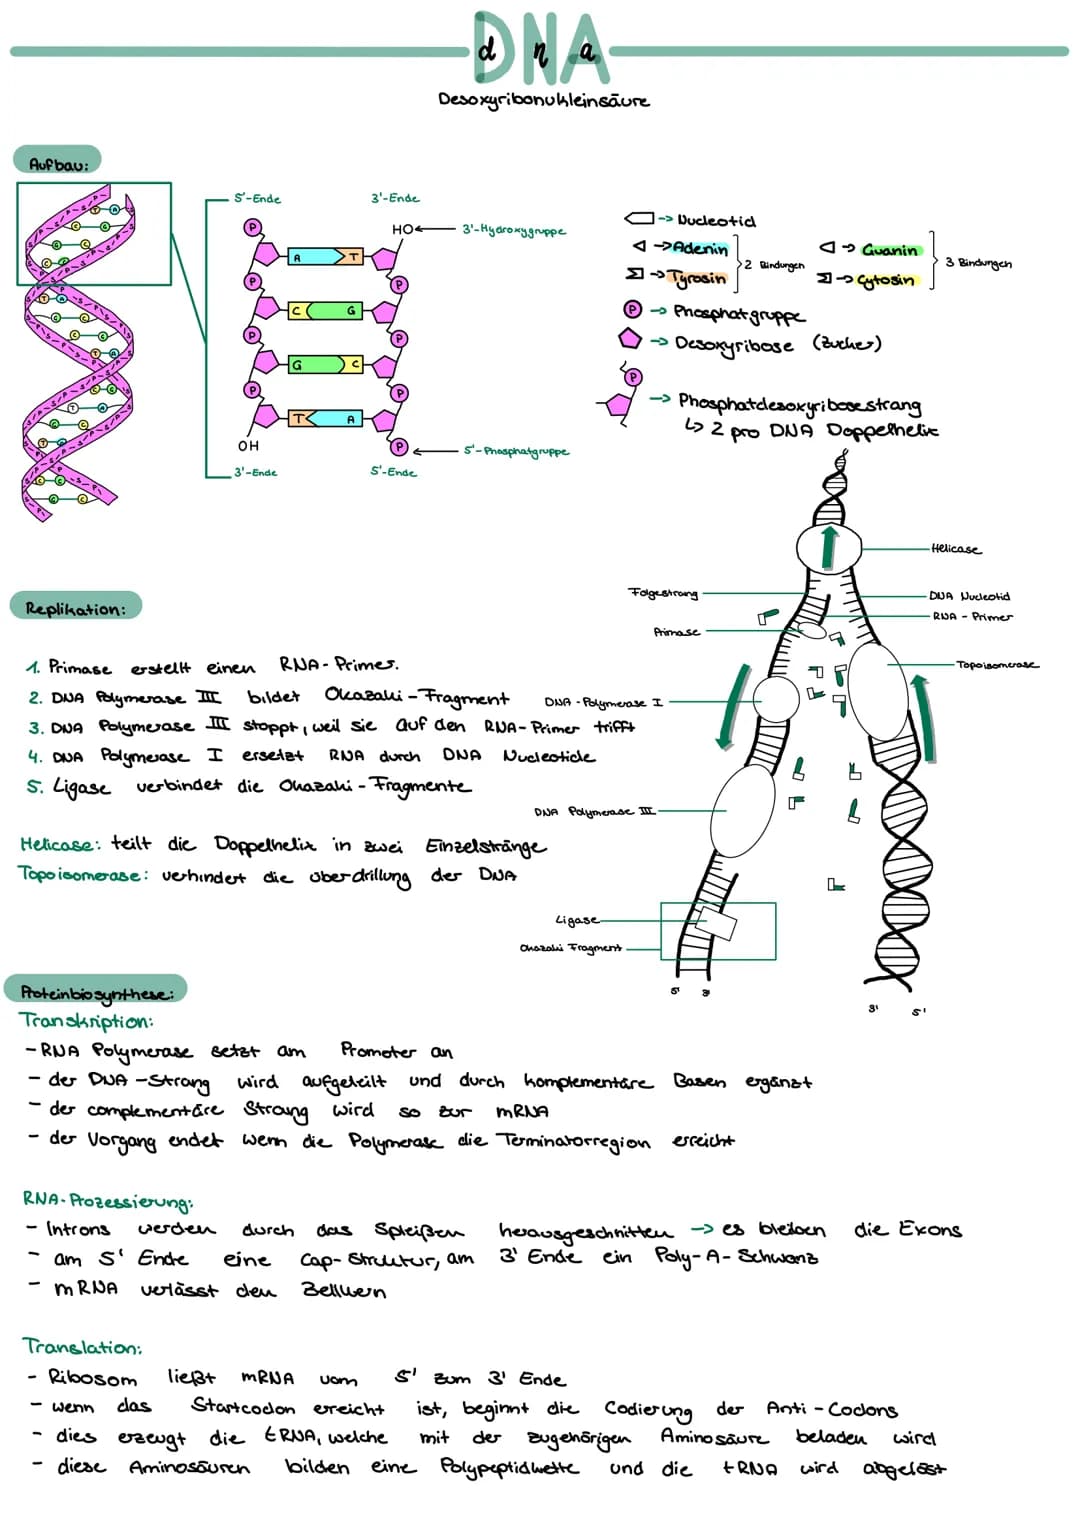 DNA
d n a
Desoxyribonukleinsäure
Aufbau:
5'-Ende 3'-Ende
HO 3'-Hydroxygruppe
P
A T
P P
C G
P P
G C
P P
T A
OH P 5'-Phosphatgruppe
3'-Ende 5'-Ende
-> Nucleotid
-> Adenin
-> Tyrosin
2 Bindungen
-> Guanin
-> Cytosin
3 Bindungen
P -> Phosphatgruppe
-> Desoxyribose (Zucker)
P
-> Phosphatdesoxyribosestrang
↳ 2 pro DNA Doppelhelix
Helicase
Folgestrang
DNA Nucleotid
RNA - Primer
Primase
Topoisomerase
DNA - Polymerase I
DNA Polymerase III
Ligase
Okazaki Fragment
5' 3'
3' 5'
Replikation:
1. Primase erstellt einen RNA-Primer.
2. DNA Polymerase III bildet Okazaki-Fragment
3. DNA Polymerase III stoppt, weil sie auf den RNA-Primer trifft
4. DNA Polymerase I ersetzt RNA durch DNA Nucleotide
5. Ligase verbindet die Okazaki-Fragmente
Helicase: teilt die Doppelhelix in zwei Einzelstränge
Topoisomerase: verhindert die überdrillung der DNA
Proteinbiosynthese:
Transkription:
- RNA Polymerase setzt am Promoter an
- der DNA-Strang wird aufgeteilt und durch komplementäre Basen ergänzt
- der complementäre Strang wird so zur mRNA
- der Vorgang endet wenn die Polymerase die Terminatorregion erreicht
RNA-Prozessierung:
- Introns werden durch das Spleißen herausgeschnitten -> es bleiben die Exons
- am 5' Ende eine Cap-Struktur, am 3' Ende ein Poly-A-Schwanz
- mRNA verlässt den Zellkern
Translation:
- Ribosom ließt mRNA vom 5' zum 3' Ende
- wenn das Startcodon erreicht ist, beginnt die Codierung der Anti-Codons
- dies erzeugt die tRNA, welche mit der zugehörigen Aminosäure beladen wird
- diese Aminosäuren bilden eine Polypeptidkette und die tRNA wird abgelöst